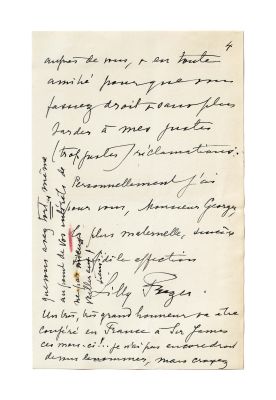 4
auprès de vous, & en toute
amitié pour que vous
fassiez droit & sans plus
tarder à mes justes
(trop justes) réclamations.
Personnellement j'ai
pour vous, Monsieur Georges,
plus maternelle, sincère
fidèle affection
Lilly
Un très, très grand honneur va être
conféré en France à Sir James
ces mois-ci!.. je n'ai pas encore droit
de mais croyez
que vous avez tout même
au fond de vos